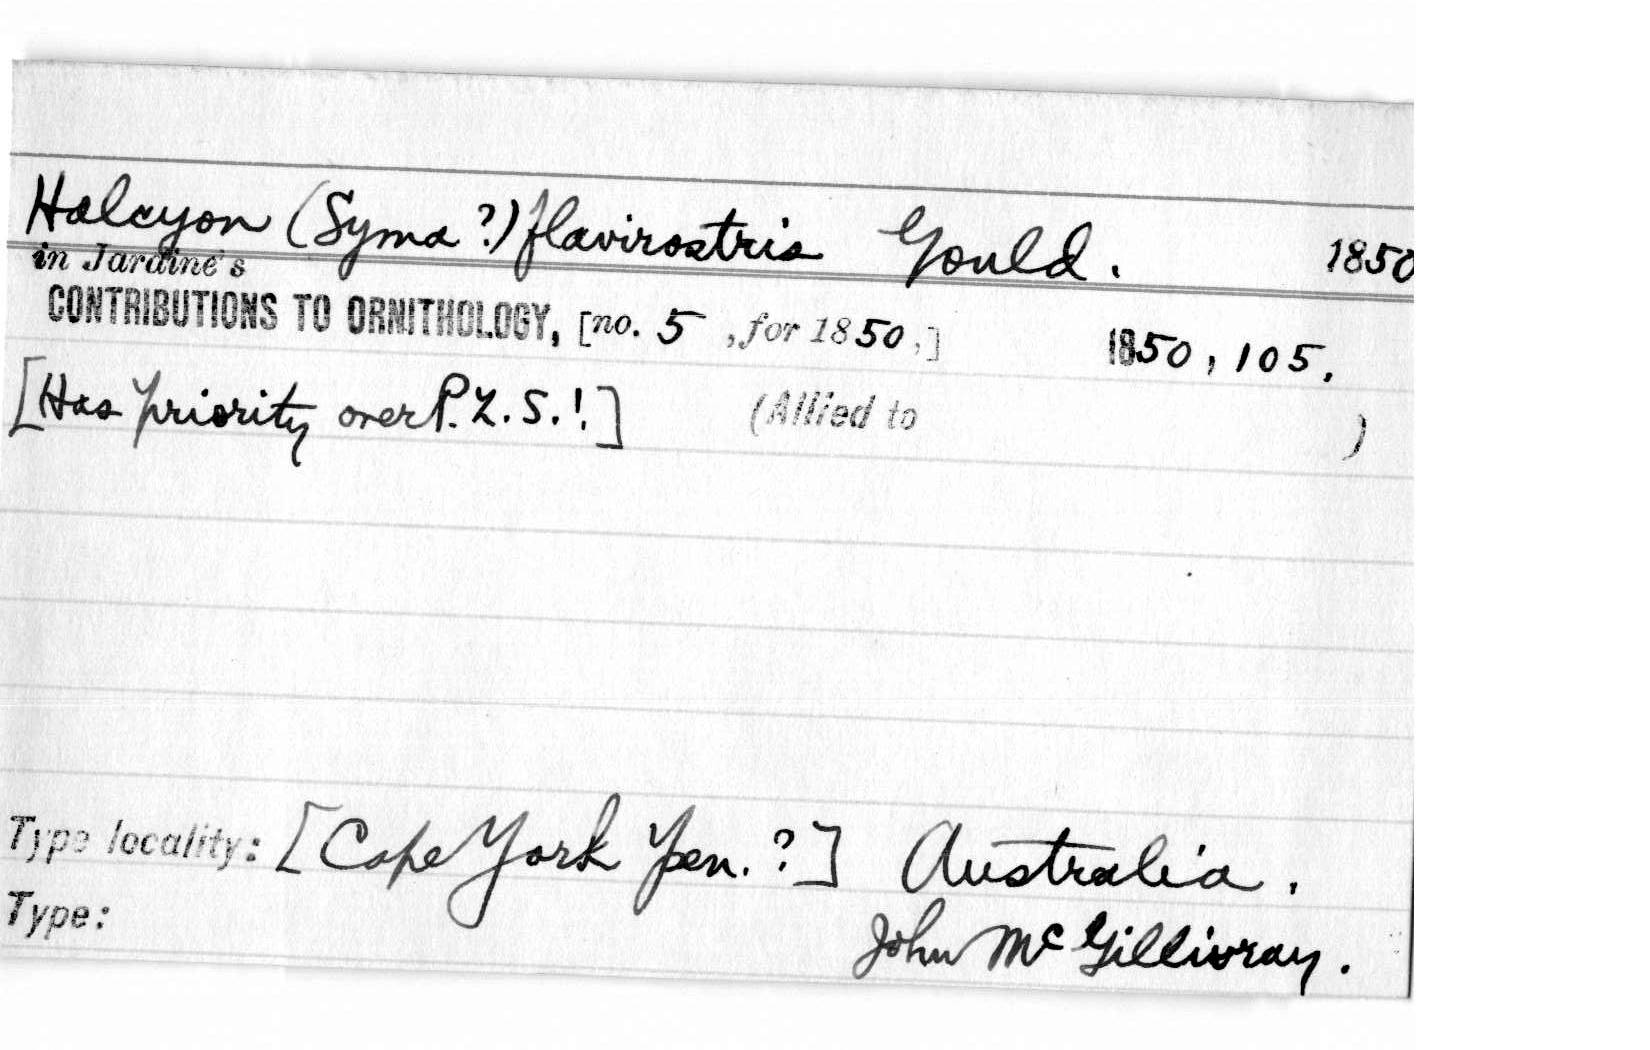 Halcyon (Syma ?) flavirostris Gould. 1850
in Jardine's
CONTRIBUTIONS TO ORNITHOLOGY, [no. 5 , for 1850,] 1850, 105.
[Has priority over P. Z. S. !] (Allied to )
Type locality: [Cape York Pen. ?] Australia.
Type: John McGillivray.